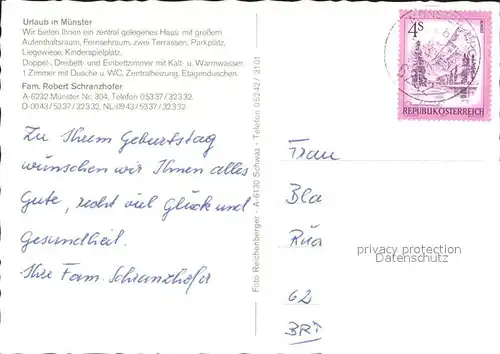 Urlaub in Münster
Wir bieten Ihnen ein zentral gelegenes Haus mit großem
Aufenthaltsraum, Fernsehraum, zwei Terrassen, Parkplatz,
Liegewiese, Kinderspielplatz.
Doppel-, Dreibett- und Einbettzimmer mit Kalt- u. Warmwasser.
1 Zimmer mit Dusche u. WC, Zentralheizung, Etagenduschen.
Fam. Robert Schranzhofer
A-6232 Münster Nr. 304, Telefon 05337/32332
D 0043/5337/32332, NL-0943/5337/32332
Zu Ihrem Geburtstag
wünschen wir Ihnen alles
Gute, recht viel Glück und
Gesundheit.
Ihre Fam. Schranzhofer
Foto Reichenberger - A-6130 Schwaz - Telefon 05242/3101
4S
REPUBLIK ÖSTERREICH
Frau
Bla
privacy protection
www.oldthing.de
62
BRT